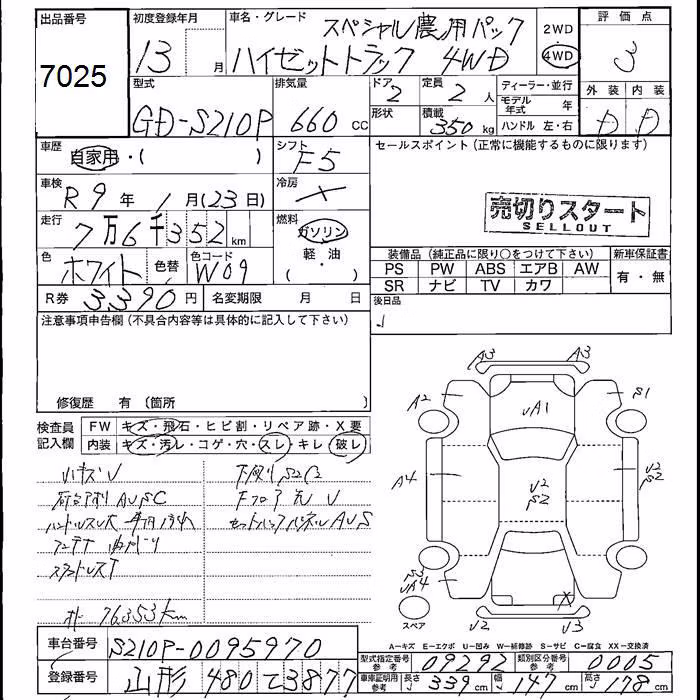 出品番号 7025
初度登録年月 13 月
車名・グレード スペシャル農用パック
ハイゼットトラック 4WD
2WD
4WD
評価点 3
外装 内装
D D
型式 GD-S210P
排気量 660 CC
ドア 2
形状
定員 2 人
積載 350 kg
ディーラー・並行
モデル年式 年
ハンドル 左・右
車歴 自家用・( )
シフト F5
セールスポイント(正常に機能するものに限ります)
車検 R9年 1月(23日)
冷房 ×
売切りスタート
SELLOUT
走行 7万6千352 km
燃料 ガソリン
軽・油
( )
色 ホワイト 色替 色コード W09
装備品(純正品に限り○をつけて下さい)
新車保証書
PS PW ABS エアB AW
SR ナビ TV カワ
有・無
R券 3390円 名変期限 月 日
後日品
注意事項申告欄(不具合内容等は具体的に記入して下さい)
修復歴 有 〔箇所 〕
検査員記入欄
FW キズ・飛石・ヒビ割・リペア跡・X要
内装 キズ・汚レ・コゲ・穴・スレ・キレ・破レ
ハキズU
下廻りS2C2
AUSC
ハンドルスレ大
アンテナ
76353km
A3 A3
A2 UA1 S1
A4 U2 S2 U2 S2
S3 UA4
U2 U3
スペア
A=キズ E=エクボ U=凹み W=補修跡 S=サビ C=腐食 XX=交換済
車台番号 S210P-0095970
型式指定番号 参考 09292 類別区分番号 参考 0005
登録番号 山形 480 て 3877
車庫証明用参考 長さ 339 cm 幅 147 cm 高さ 178 cm